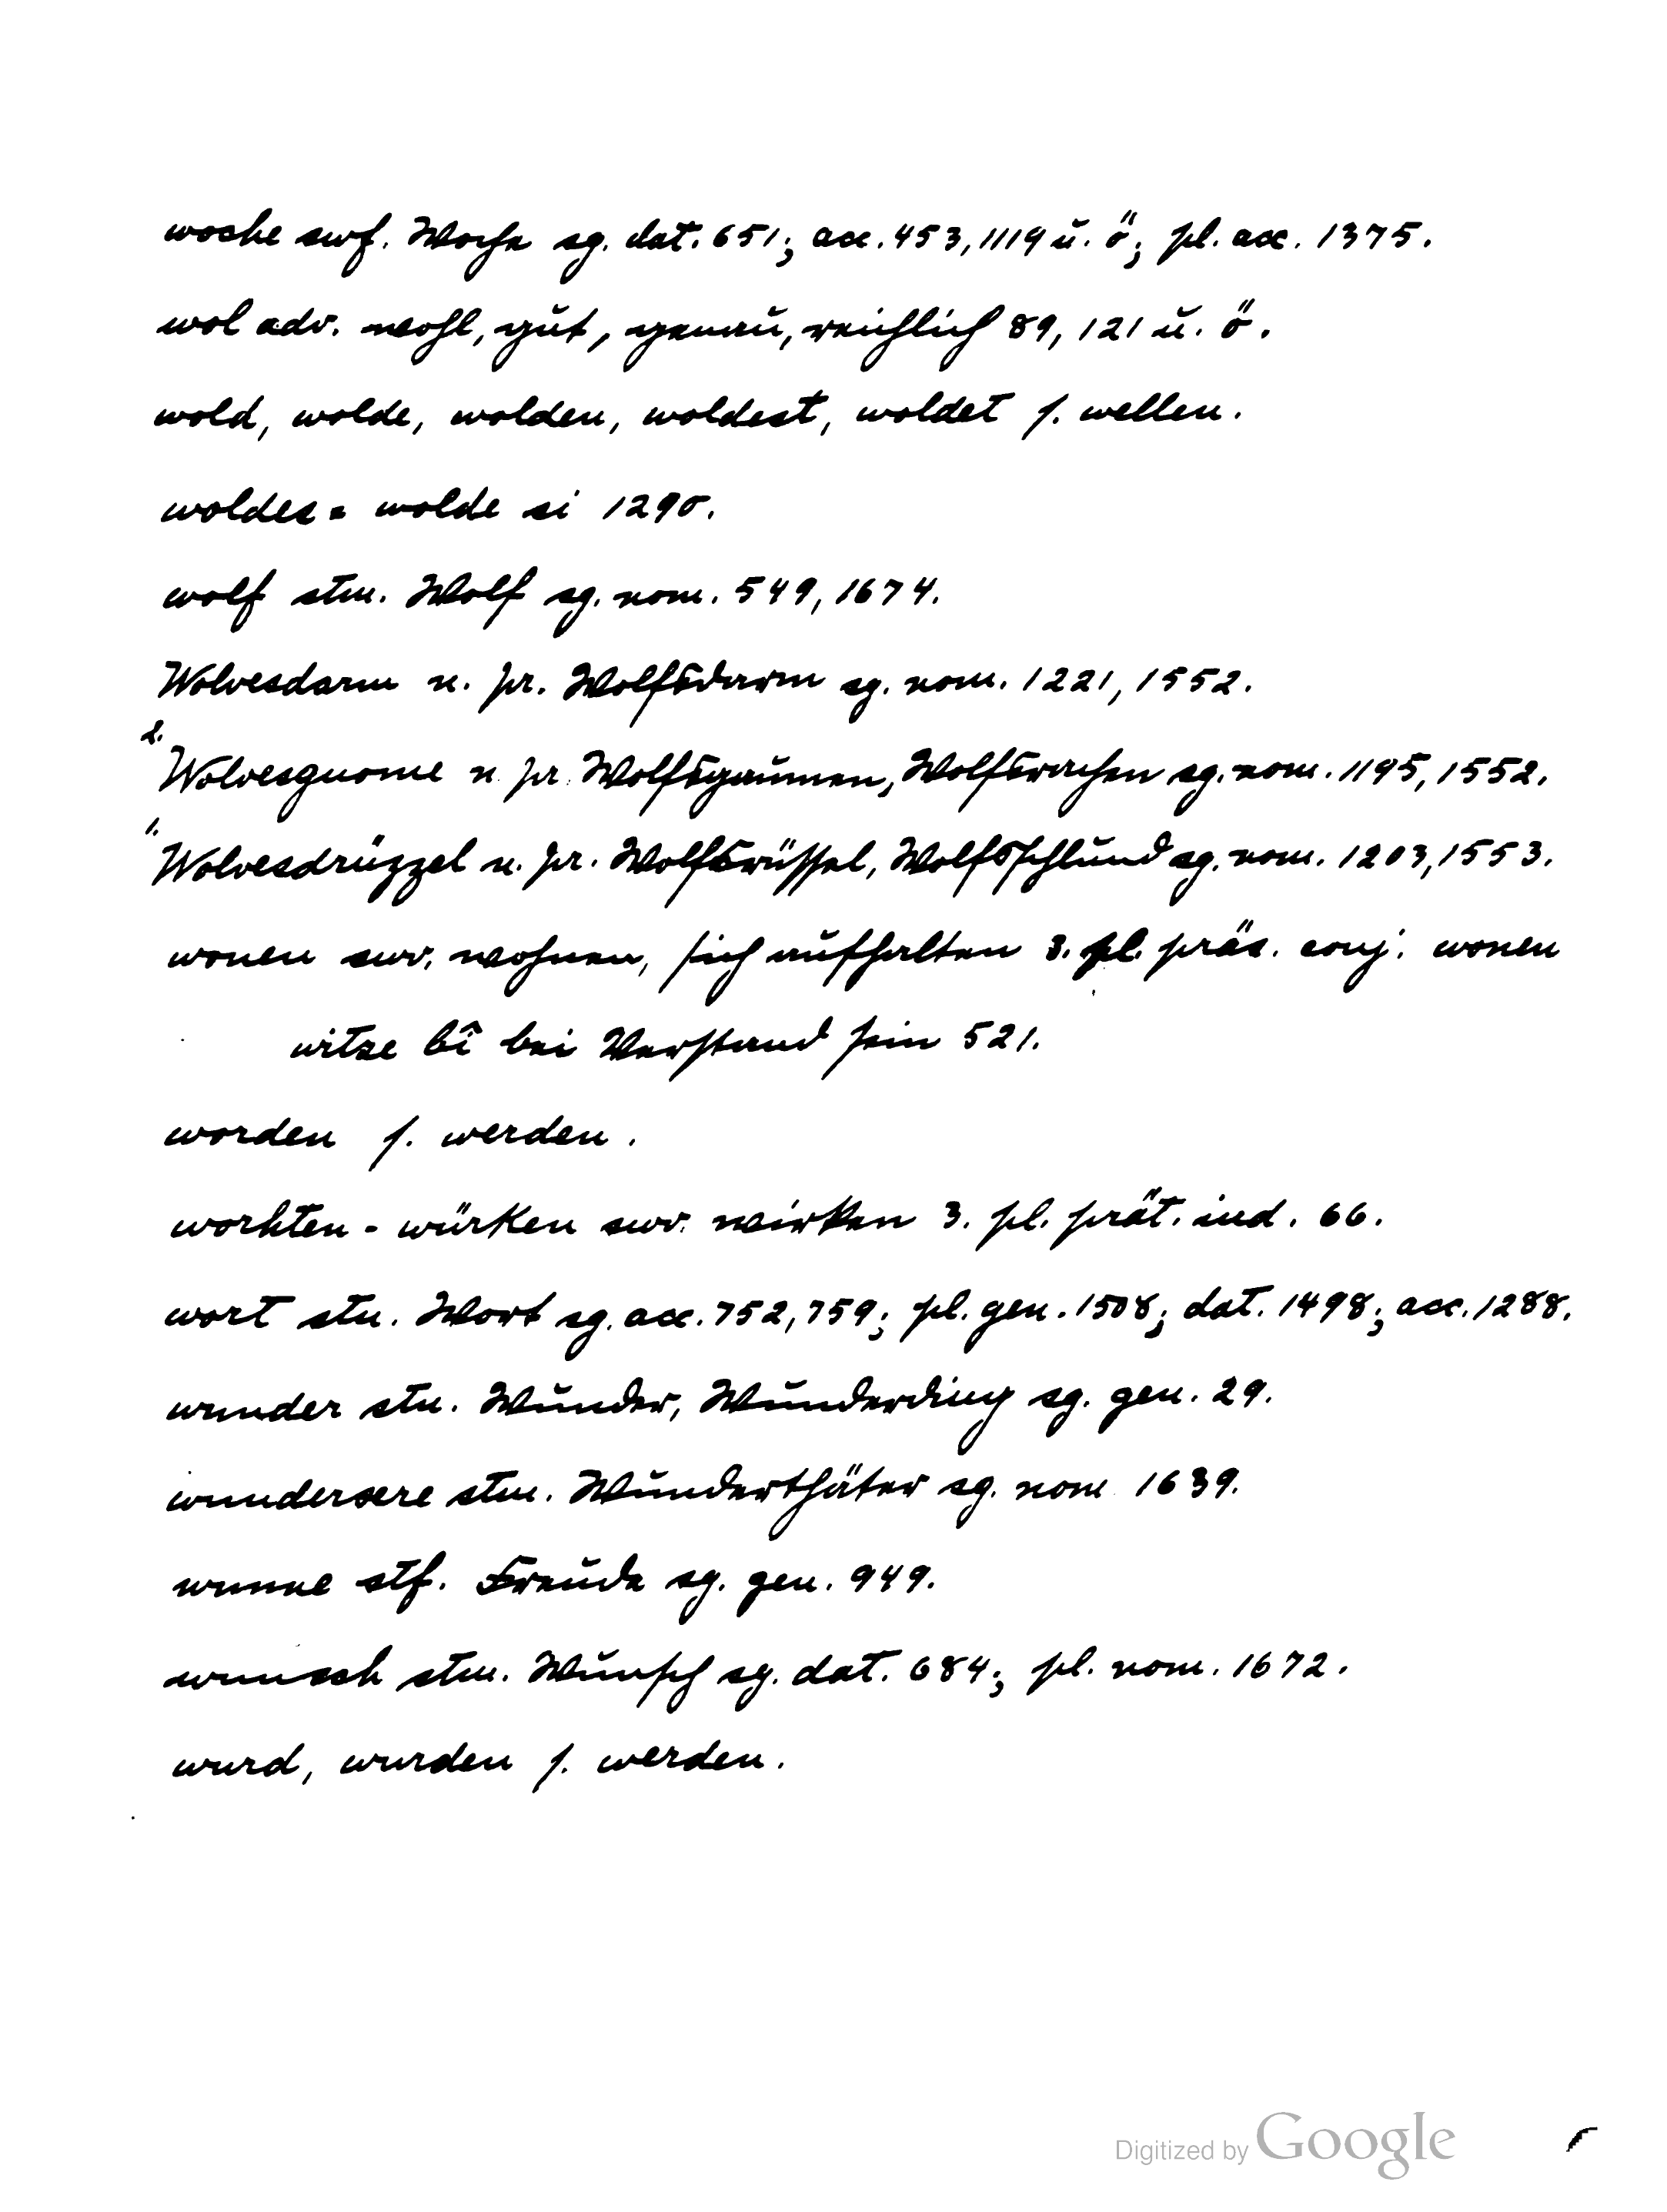 woche swf. Woche sg. dat. 651; acc. 453, 1119 u. ö; pl. acc. 1375.
wol adv. wohl, gut, genau, reichlich 89, 121 u. ö.
wold, wolde, wolden, woldest, woldet s. wellen.
woldes = wolde si 1290.
wolf stm. Wolf sg. nom. 549, 1674.
Wolvesdarm n. pr. Wolfsdarm sg. nom. 1221, 1552.
2.
Wolvesguome n. pr. Wolfsgaumen, Wolfsrachen sg. nom. 1195, 1552.
1.
Wolvesdrüzzel n. pr. Wolfsrüssel, Wolfsschlund sg. nom. 1203, 1553.
wonen swv. wohnen, sich aufhalten 3. pl. präs. conj. wonen
witze bî bei Verstand sein 521.
worden s. werden.
worhten - würken swv. wirken 3. pl. prät. ind. 66.
wort stn. Wort sg. acc. 752, 759; pl. gen. 1508; dat. 1498; acc. 1288.
wunder stn. Wunder, Wunderding sg. gen. 29.
wunderære stm. Wunderthäter sg. nom 1639.
wunne stf. Freude sg. gen. 949.
wunsch stm. Wunsch sg. dat. 684; pl. nom. 1672.
wurd, wurden s. werden.
Digitized by Google